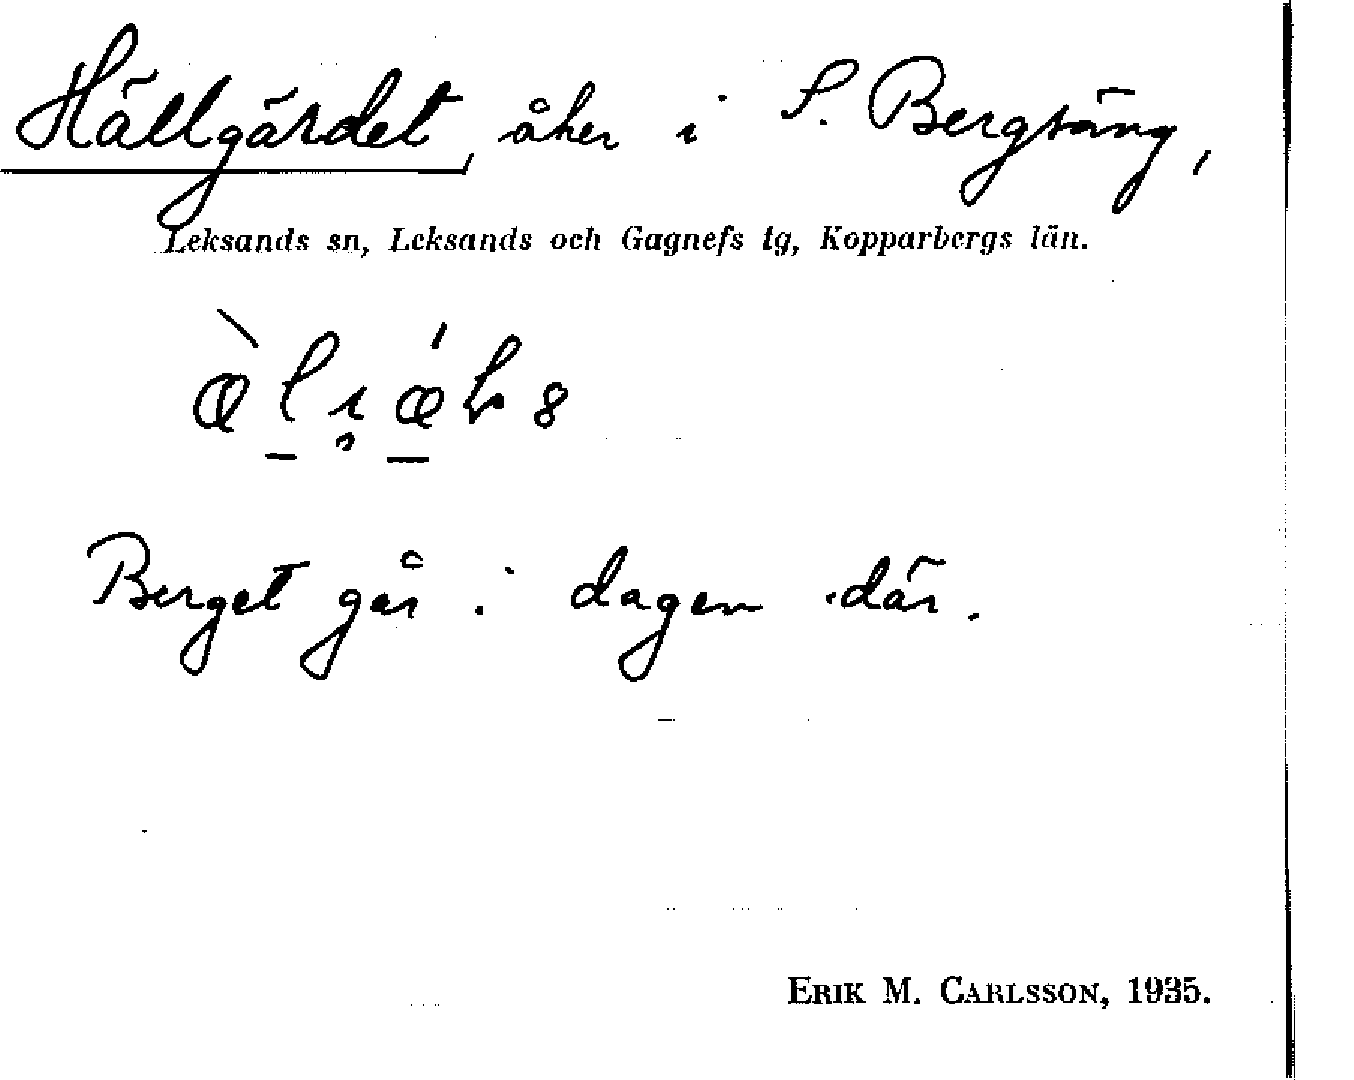 Hällgärdet, åker i S. Bergsäng,
Leksands sn, Leksands och Gagnefs tg, Kopparbergs län.
Berget går i dagen där.
ERIK M. CARLSSON, 1935.